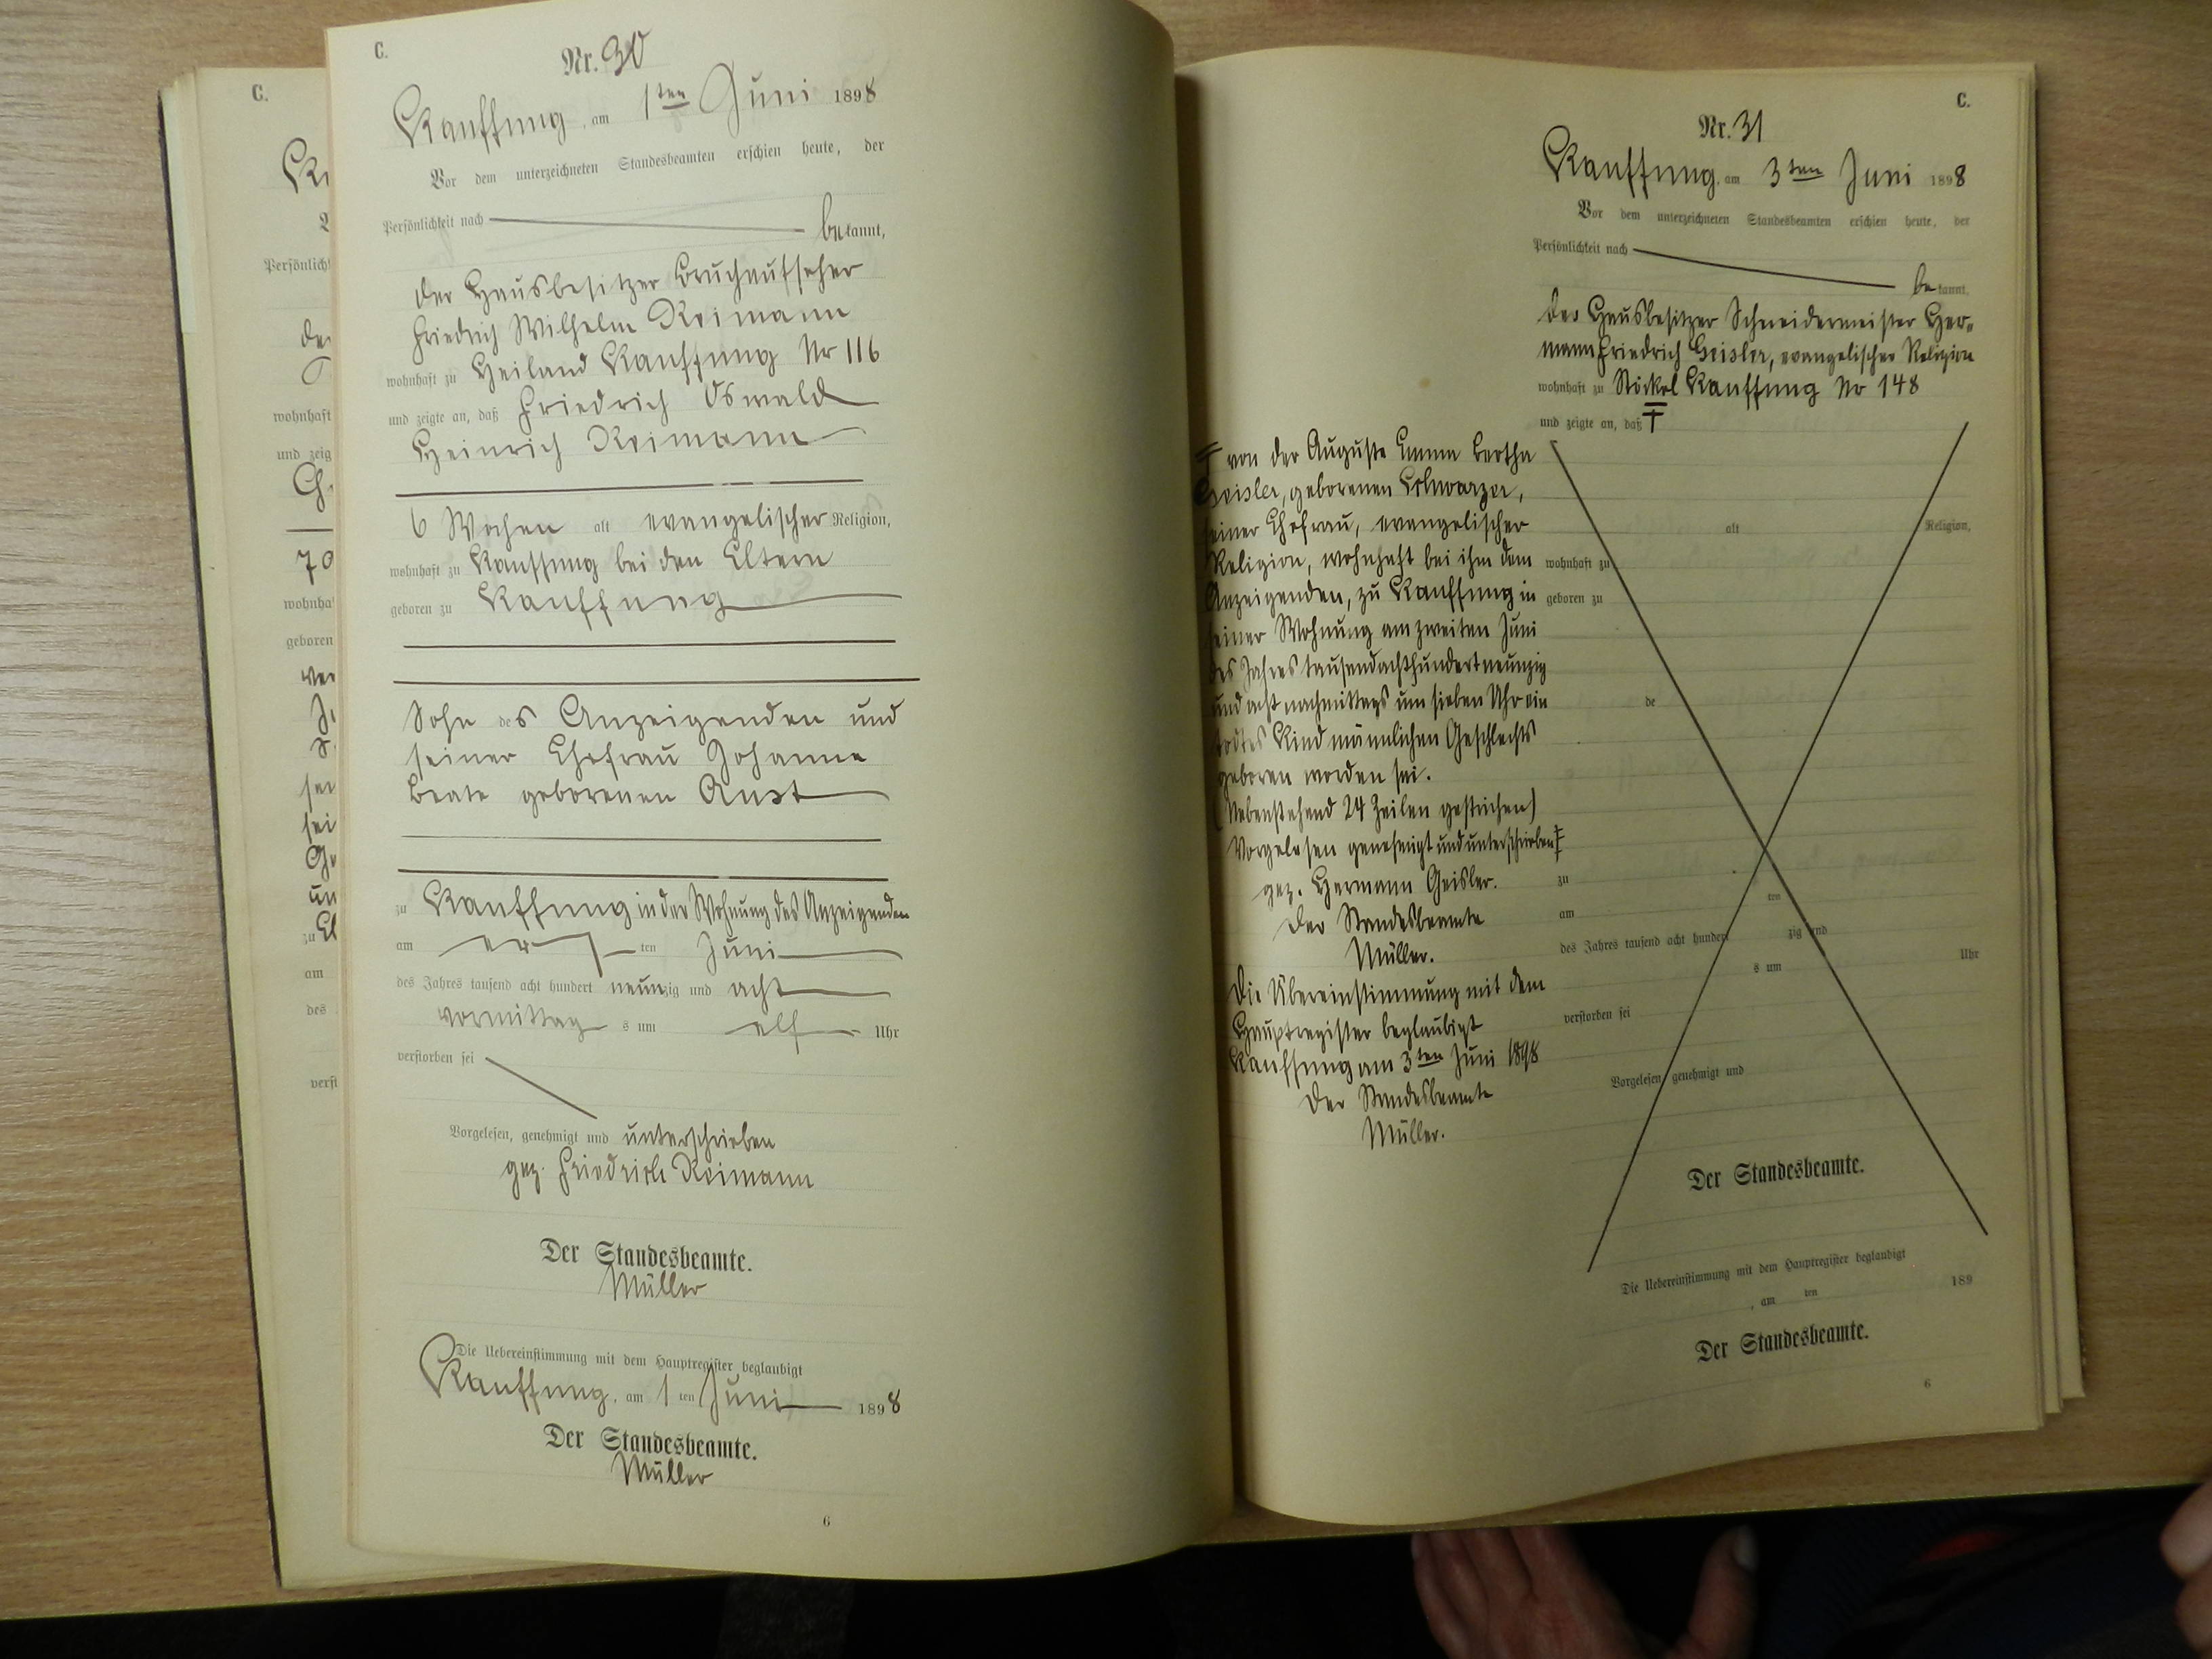 C.
Nr. 30
Kauffung, am 1ten Juni 1898
Vor dem unterzeichneten Standesbeamten erschien heute, der
Persönlichkeit nach bekannt,
der Hausbesitzer Bruchaufseher
Friedrich Wilhelm Reimann
wohnhaft zu Heiland Kauffung Nr 116
und zeigte an, daß Friedrich Oswald
Heinrich Reimann
6 Wochen alt evangelischer Religion,
wohnhaft zu Kauffung bei den Eltern
geboren zu Kauffung
Sohn des Anzeigenden und
seiner Ehefrau Johanne
Beate geborenen Aust
zu Kauffung in der Wohnung des Anzeigenden
am ten Juni
des Jahres tausend acht hundert neunzig und acht
vormittags um elf Uhr
verstorben sei
Vorgelesen, genehmigt und unterschrieben
gez. Friedrich Reimann
Der Standesbeamte.
Müller
Die Uebereinstimmung mit dem Hauptregister beglaubigt
Kauffung, am 1ten Juni 1898
Der Standesbeamte.
Müller
6
C.
Nr. 31
Kauffung, am 3ten Juni 1898
Vor dem unterzeichneten Standesbeamten erschien heute, der
Persönlichkeit nach bekannt,
der Hausbesitzer Schneidermeister Her=
mann Friedrich Geisler, evangelischer Religion
wohnhaft zu Stöckel Kauffung No 148
und zeigte an, daß
von der Auguste Emma Bertha
Geisler, geborenen Schwarzer,
seiner Ehefrau, evangelischer
Religion, wohnhaft bei ihm dem
Anzeigenden, zu Kauffung in
seiner Wohnung am zweiten Juni
des Jahres tausendachthundertneunzig
und acht nachmittags um sieben Uhr ein
todtes Kind männlichen Geschlechts
geboren worden sei.
(Nebenstehend 24 Zeilen gestrichen)
Vorgelesen genehmigt und unterschrieben
gez. Hermann Geisler.
Der Standesbeamte
Müller.
Die Übereinstimmung mit dem
Hauptregister beglaubigt
Kauffung am 3ten Juni 1898
Der Standesbeamte
Müller.
alt Religion,
wohnhaft zu
geboren zu
de
zu
am ten
des Jahres tausend acht hundert zig und
s um Uhr
verstorben sei
Vorgelesen, genehmigt und
Der Standesbeamte.
Die Uebereinstimmung mit dem Hauptregister beglaubigt
, am ten 189
Der Standesbeamte.
6